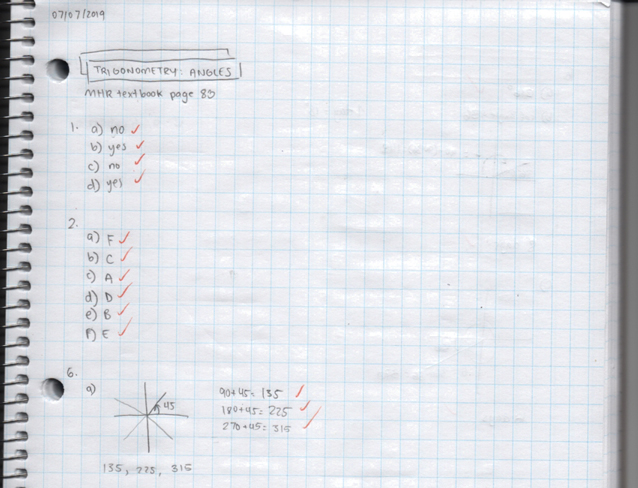 07/07/2019
TRIGONOMETRY: ANGLES
MHR textbook page 83
1. a) no ✓
b) yes ✓
c) no ✓
d) yes ✓
2.
a) F ✓
b) C ✓
c) A ✓
d) D ✓
e) B ✓
f) E ✓
6.
a)
45
90+45= 135 ✓
180+45= 225 ✓
270+45= 315 ✓
135, 225, 315